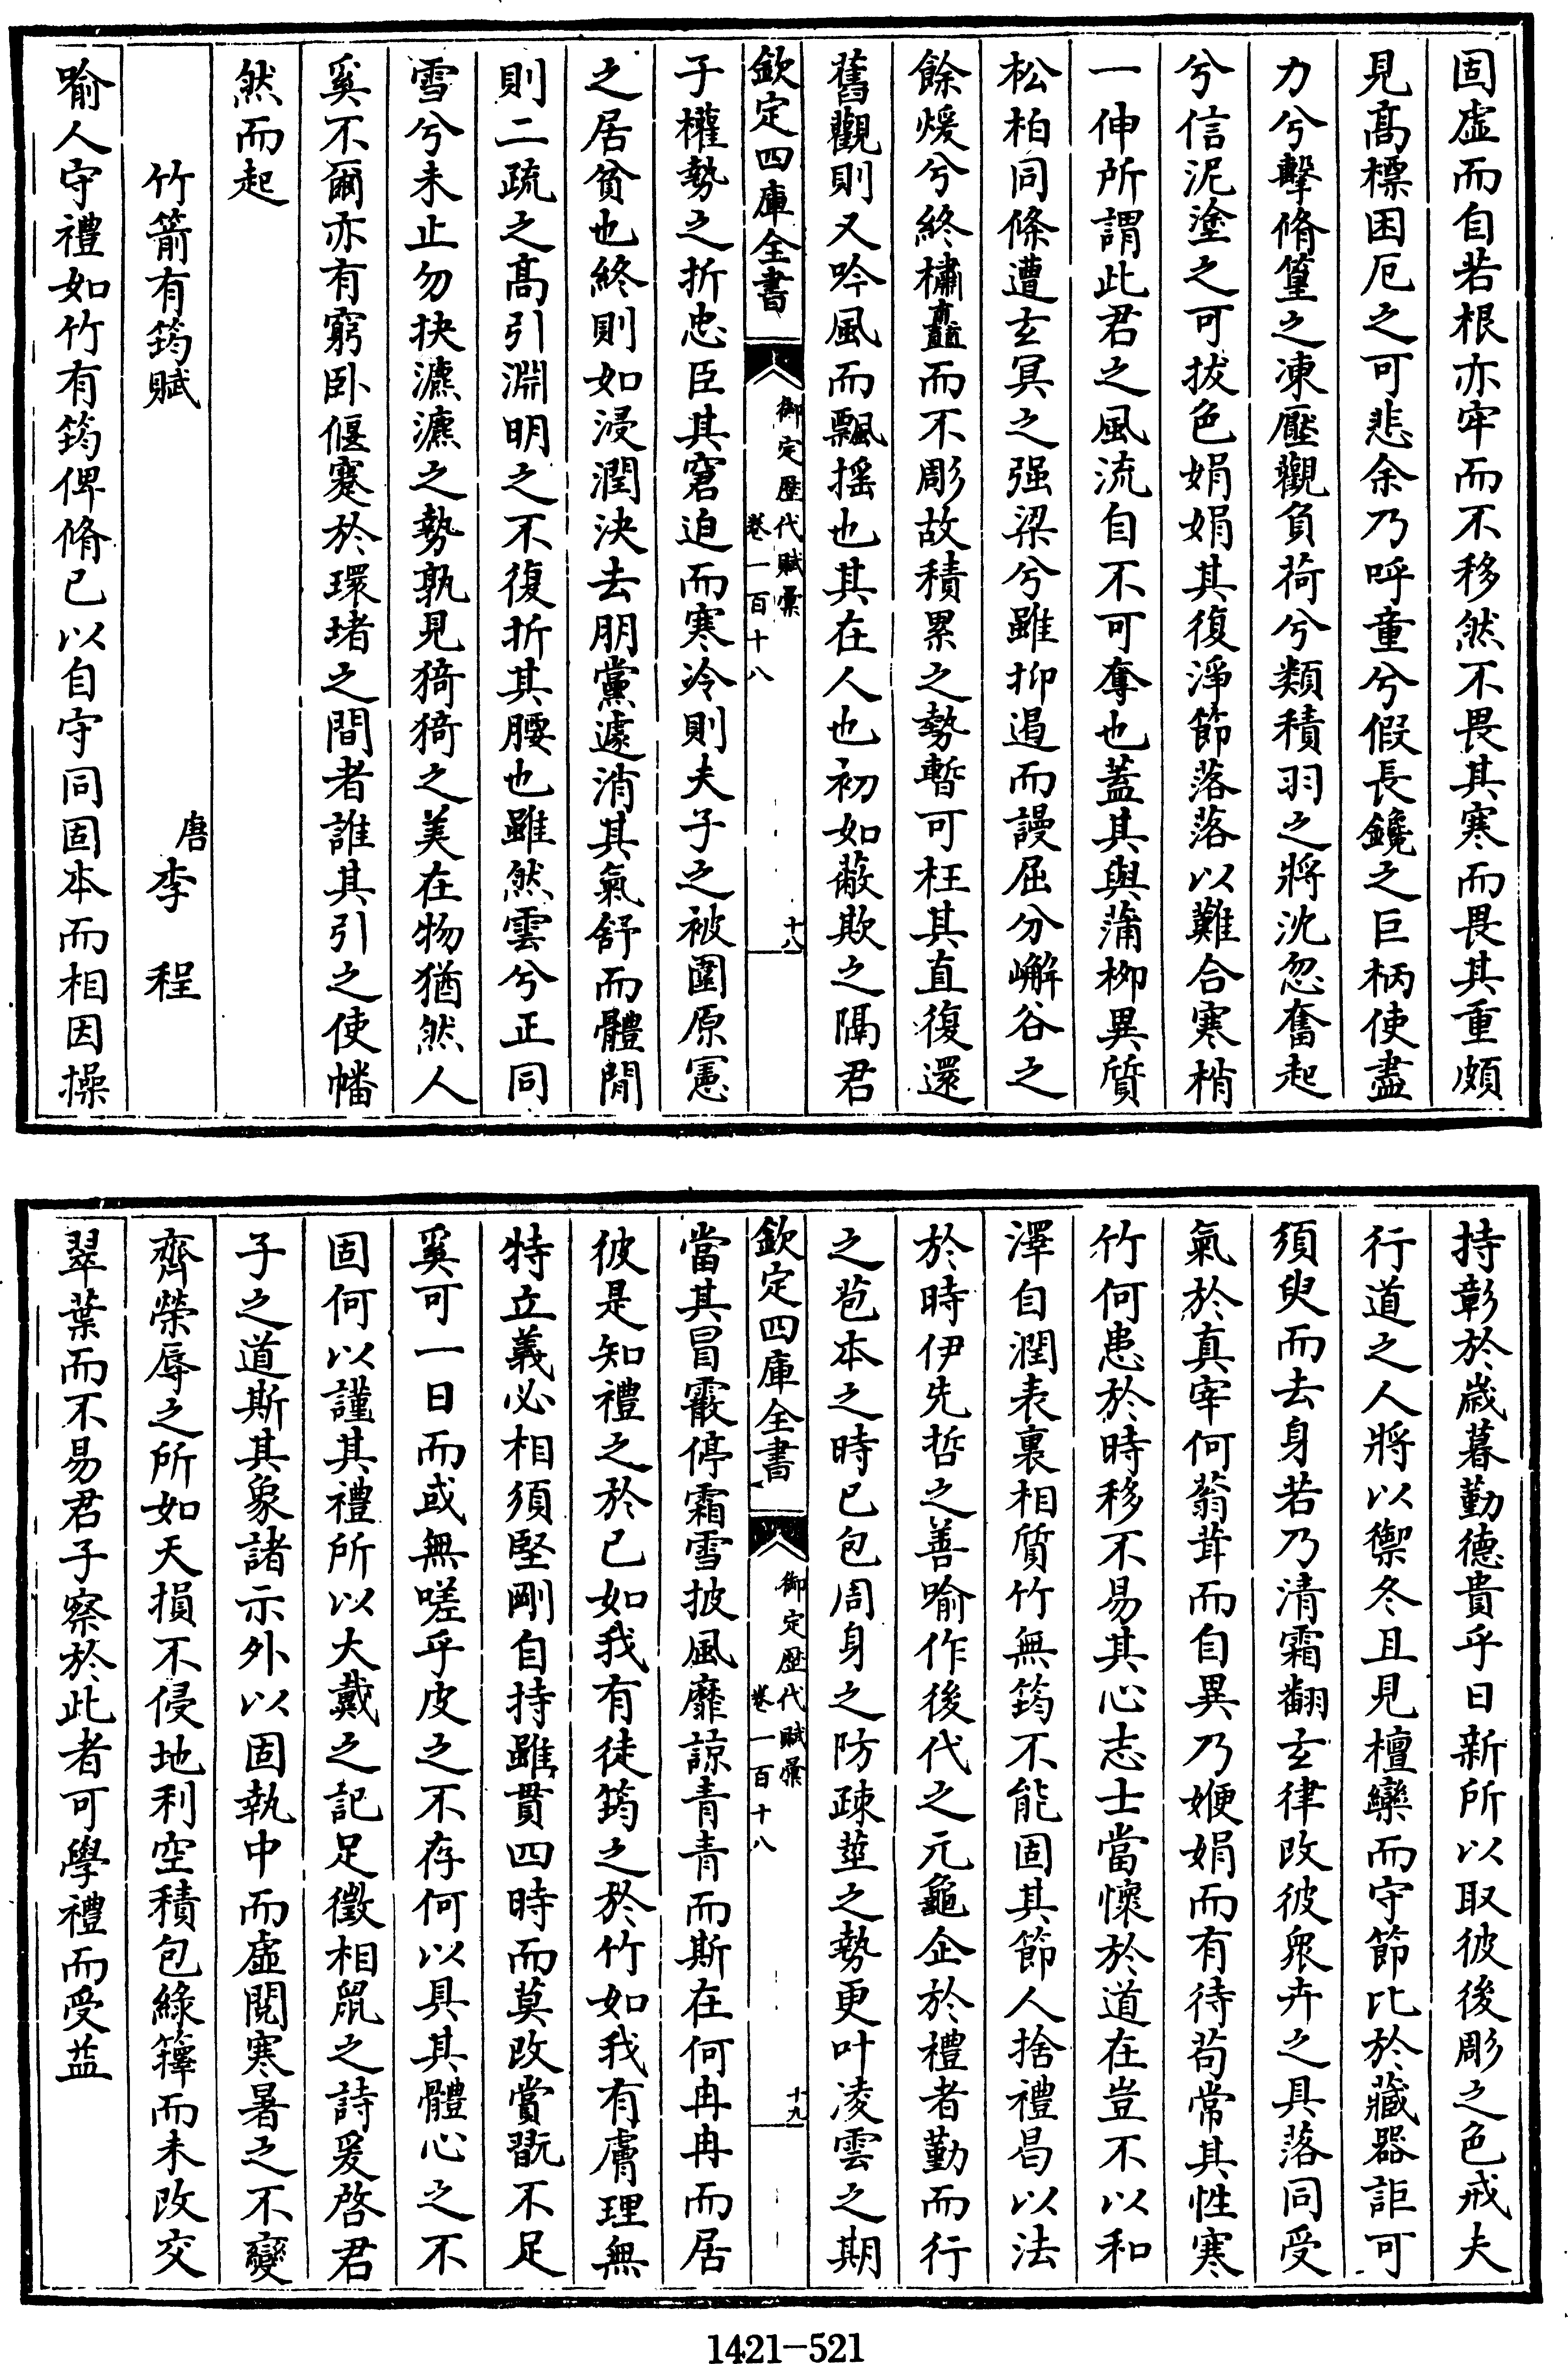 固虛而自若根亦牢而不移然不畏其寒而畏其重頗
見髙標困厄之可悲余乃呼童兮假長鑱之巨柄使盡
力兮擊脩篁之凍壓觀負荷兮類積羽之將沈忽奮起
兮信泥塗之可拔色娟娟其復淨節落落以難合寒梢
一伸所謂此君之風流自不可奪也蓋其與蒲栁異質
松柏同條遭玄冥之强梁兮雖抑遏而謾屈分嶰谷之
餘煖兮終橚矗而不彫故積累之勢暫可枉其直復還
舊觀則又吟風而飄揺也其在人也初如蔽欺之隔君
欽定四庫全書
御定歴代賦彙
卷一百十八
十八
子權勢之折忠臣其窘迫而寒冷則夫子之被圍原憲
之居貧也終則如浸潤決去朋黨遽消其氣舒而體閒
則二疏之髙引淵明之不復折其腰也雖然雲兮正同
雪兮未止勿抉瀌瀌之勢孰見猗猗之美在物猶然人
奚不爾亦有窮卧偃蹇於環堵之間者誰其引之使幡
然而起
竹箭有筠賦
唐李程
喻人守禮如竹有筠俾脩已以自守同固本而相因操
持彰於歳暮勤德貴乎日新所以取彼後彫之色戒夫
行道之人將以禦冬且見檀欒而守節比於藏器詎可
須臾而去身若乃清霜翻玄律改彼衆卉之具落同受
氣於真宰何蓊茸而自異乃㛹娟而有待苟常其性寒
竹何患於時移不易其心志士當懷於道在豈不以和
澤自潤表裏相質竹無筠不能固其節人捨禮曷以法
於時伊先哲之善喻作後代之元龜企於禮者勤而行
之苞本之時已包周身之防疎莖之勢更叶凌雲之期
欽定四庫全書
御定歴代賦彙
卷一百十八
十九
當其冒霰停霜雪披風靡諒青青而斯在何冉冉而居
彼是知禮之於已如我有徒筠之於竹如我有膚理無
特立義必相須堅剛自持雖貫四時而莫改賞翫不足
奚可一日而或無嗟乎皮之不存何以具其體心之不
固何以謹其禮所以大戴之記足徵相鼠之詩爰啓君
子之道斯其象諸示外以固執中而虛閲寒暑之不變
齊榮辱之所如天損不侵地利空積包綠籜而未改交
翠葉而不易君子察於此者可學禮而受益
1421-521